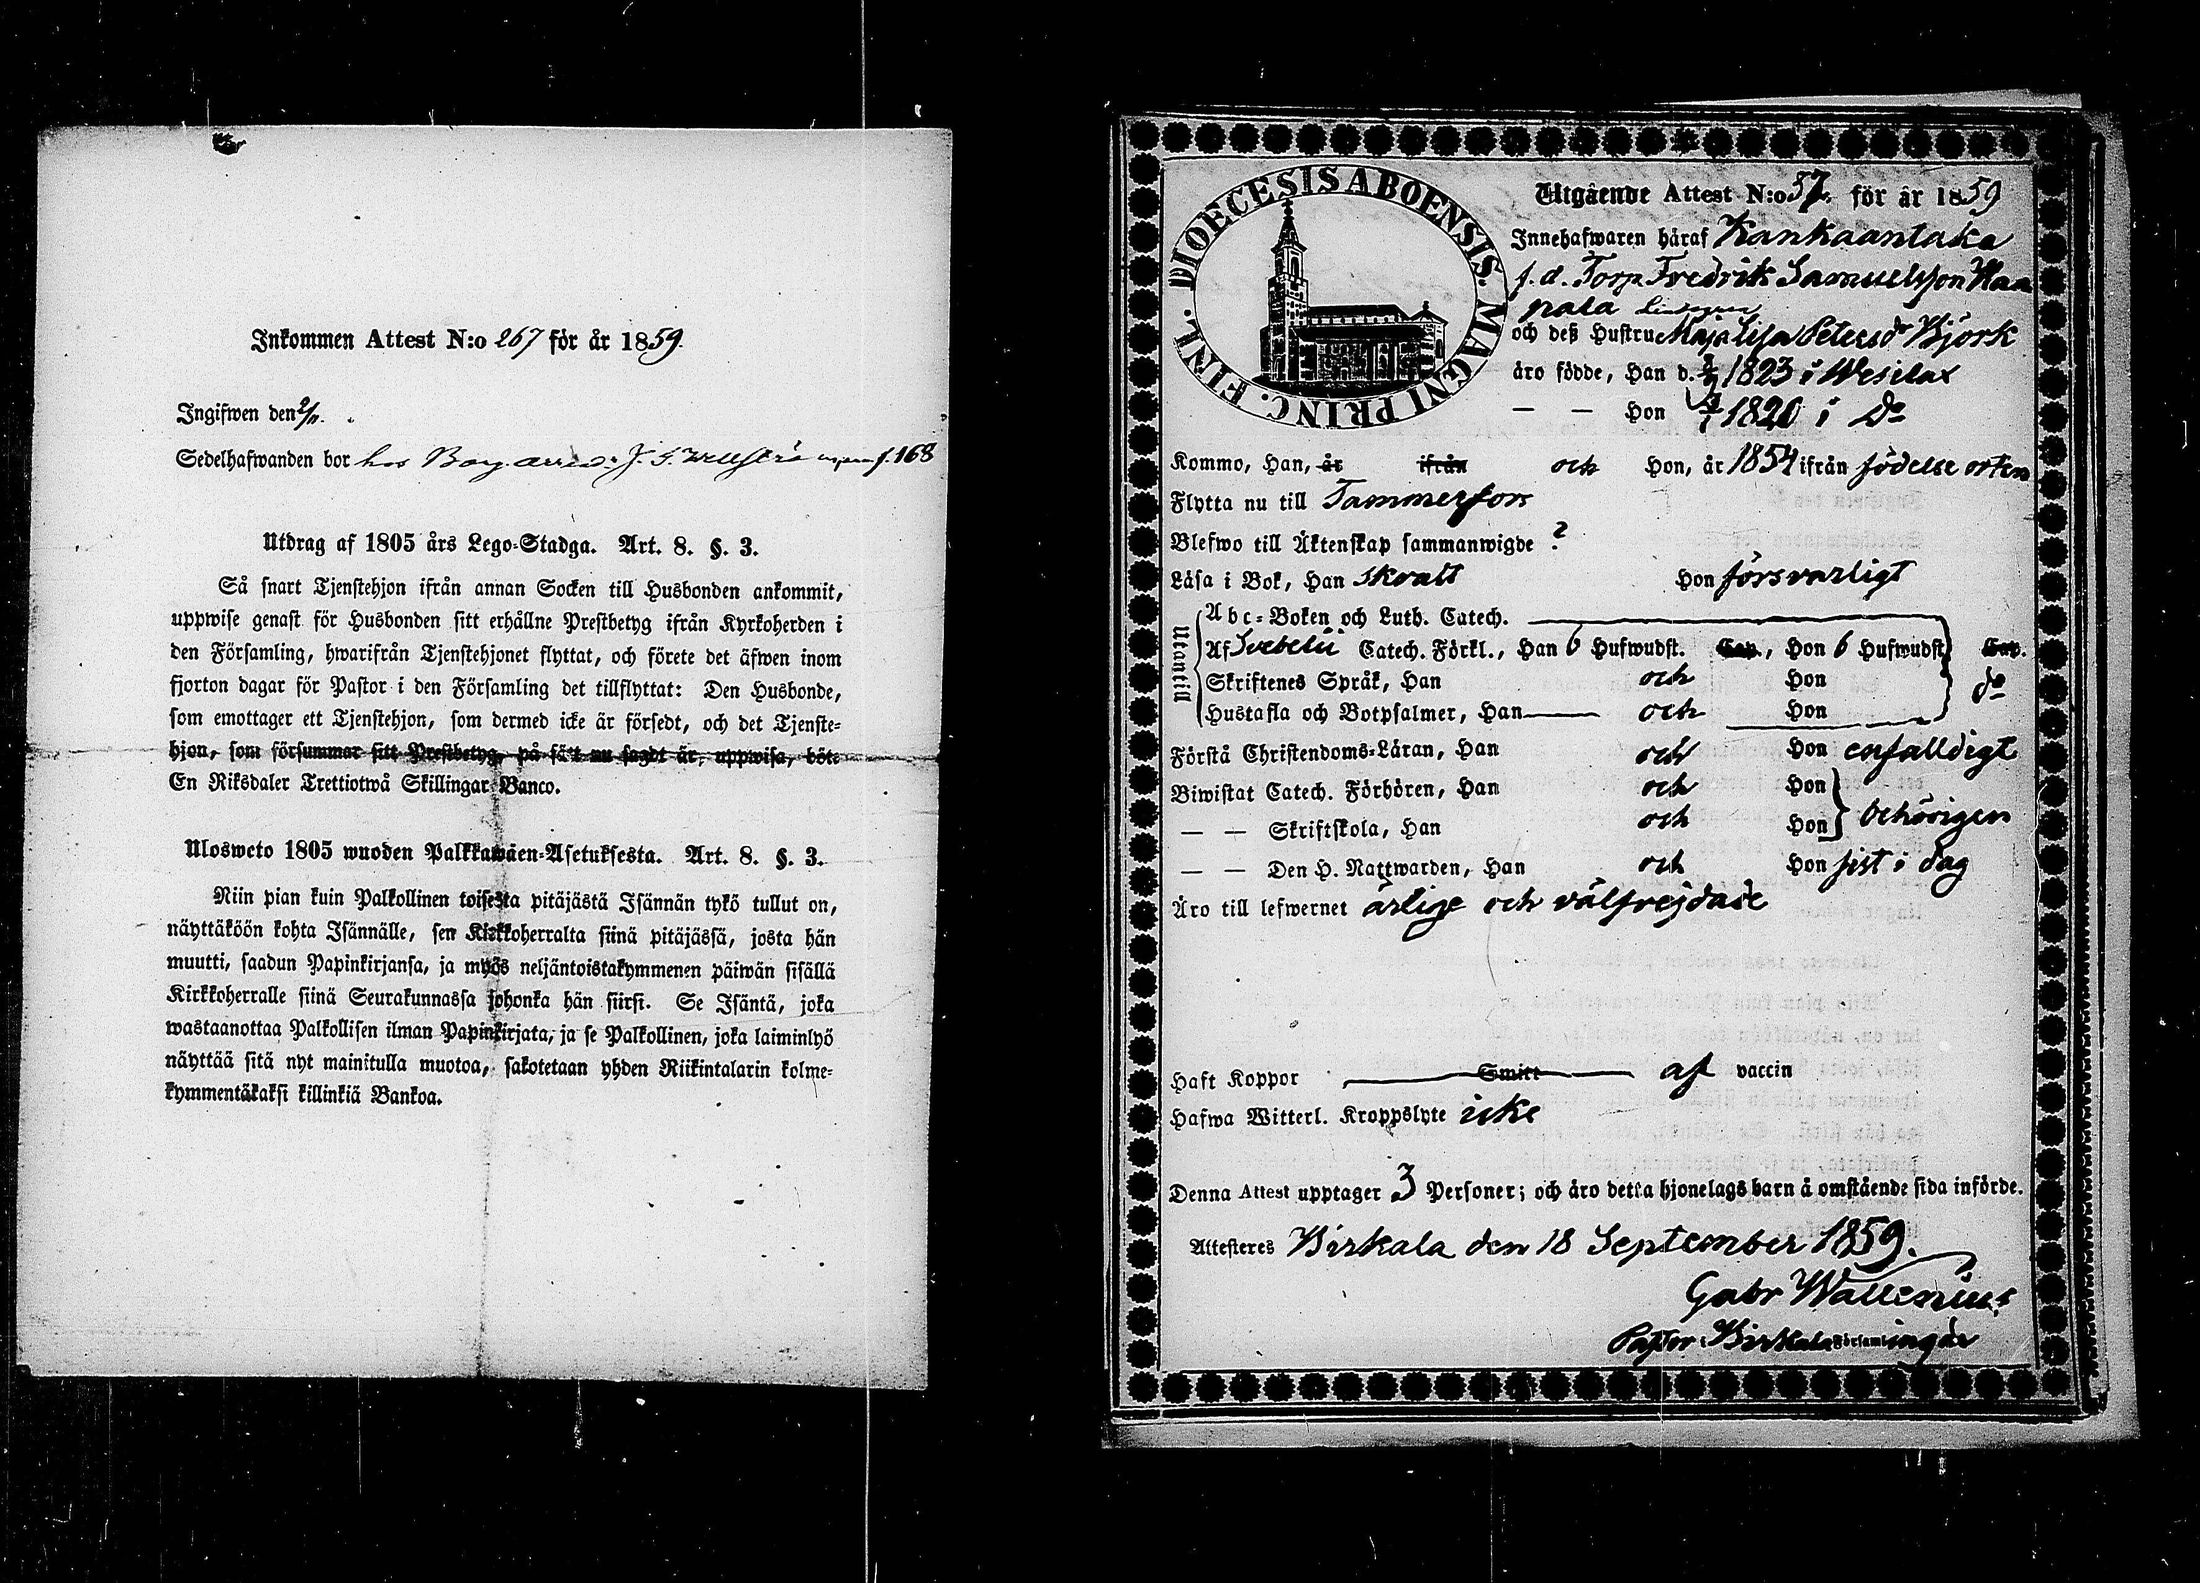 Inkommen Attest N:o 267 för år 1859.
Ingifwen den 2/11.
Sedelhafwanden bor hos J. G. f. 168
Utdrag af 1805 års Lego-Stadga. Art. 8. §. 3.
Så snart Tjenstehjon ifrån annan Socken till Husbonden ankommit,
uppwise genast för Husbonden sitt erhållne Prestbetyg ifrån Kyrkoherden i
den Församling, hwarifrån Tjenstehjonet flyttat, och förete det äfwen inom
fjorton dagar för Pastor i den Församling det tillflyttat: Den Husbonde,
som emottager ett Tjenstehjon, som dermed icke är försedt, och det Tjenste-
hjon, som försummar sitt Prestbetyg, på sätt nu sagdt är, uppwisa, böte
En Riksdaler Trettiotwå Skillingar Banco.
Ulosweto 1805 wuoden Palkkawäen-Asetuksesta. Art. 8. §. 3.
Niin pian kuin Palkollinen toisesta pitäjästä Isännän tykö tullut on,
näyttäköön kohta Isännälle, sen Kirkkoherralta siinä pitäjässä, josta hän
muutti, saadun Papinkirjansa, ja myös neljäntoistakymmenen päiwän sisällä
Kirkkoherralle siinä Seurakunnassa johonka hän siirsi. Se Isäntä, joka
wastaanottaa Palkollisen ilman Papinkirjata, ja se Palkollinen, joka laiminlyö
näyttää sitä nyt mainitulla muotoa, sakotetaan yhden Riikintalarin kolme-
kymmentäkaksi killinkiä Bankoa.
DIOECESIS ABOENSIS. MAGNI PRINC. FINL.
Utgående Attest N:o 57. för år 1859
Innehafwaren häraf Kankaantaka
f. d. Torp. Fredrik Samuelsson Haa
pala
och deß Hustru Maja Lisa Petersdr Björk
äro födde, Han d. 1823 i Wesilax
— — Hon 1820 i do
Kommo, Han, år ifrån och Hon, år 1854 ifrån födelse orten
Flytta nu till Tammerfors
Blefwo till Äktenskap sammanwigde ?
Läsa i Bok, Han skralt Hon försvarligt
Utantill
Abc-Boken och Luth. Catech.
Af Svebelii Catech. Förkl., Han 6 Hufwudst. Cap., Hon 6 Hufwudst. Cap.
Skriftenes Språk, Han och Hon do
Hustafla och Botpsalmer, Han och Hon
Förstå Christendoms-Läran, Han och Hon enfalldigt
Biwistat Catech. Förhören, Han och Hon
— — Skriftskola, Han och Hon behörigen
— — Den H. Nattwarden, Han och Hon sist i dag
Äro till lefwernet ärlige och välfrejdade
Haft Koppor Smitt af vaccin
Hafwa Witterl. Kroppslyte icke
Denna Attest upptager 3 Personer; och äro detta hjonelags barn å omstående sida införde.
Attesteres Birkala den 18 September 1859.
Gabr Wallenius
Pastor i Birkala Församlingar